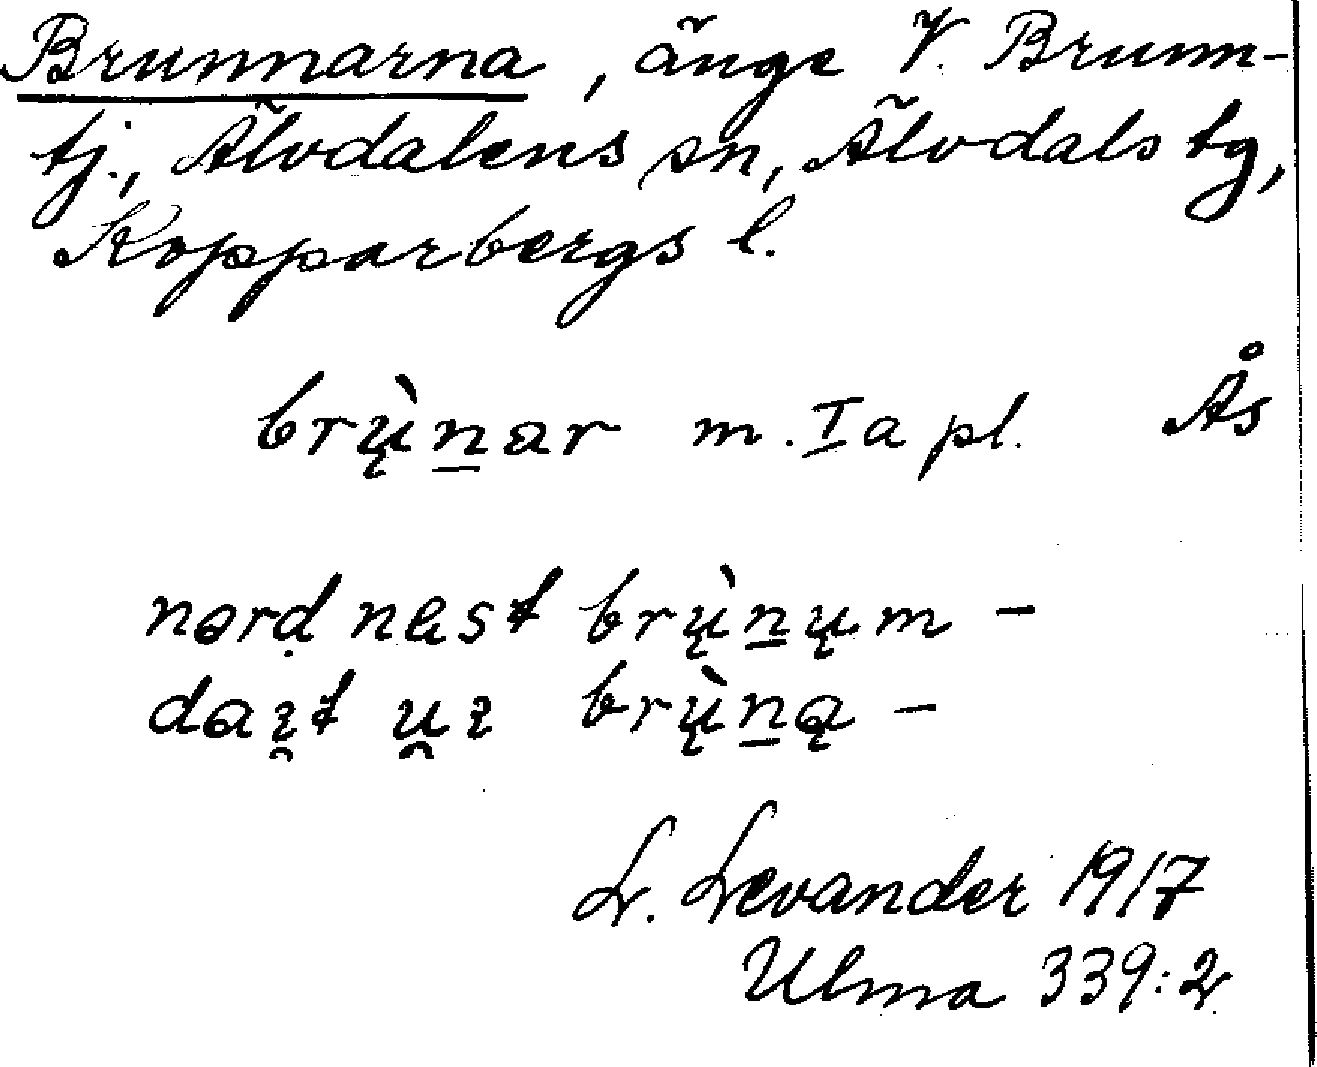 Brunnarna, änge V. Brunn-
tj., Älvdalens sn, Älvdals tg,
Kopparbergs l.
brų̀n̲ar m. I a pl. Ås
nørḍ nest brų̀n̲ųm –
daı̯t u̯ı brų̀n̲ą –
L. Levander 1917
Ulma 339:2